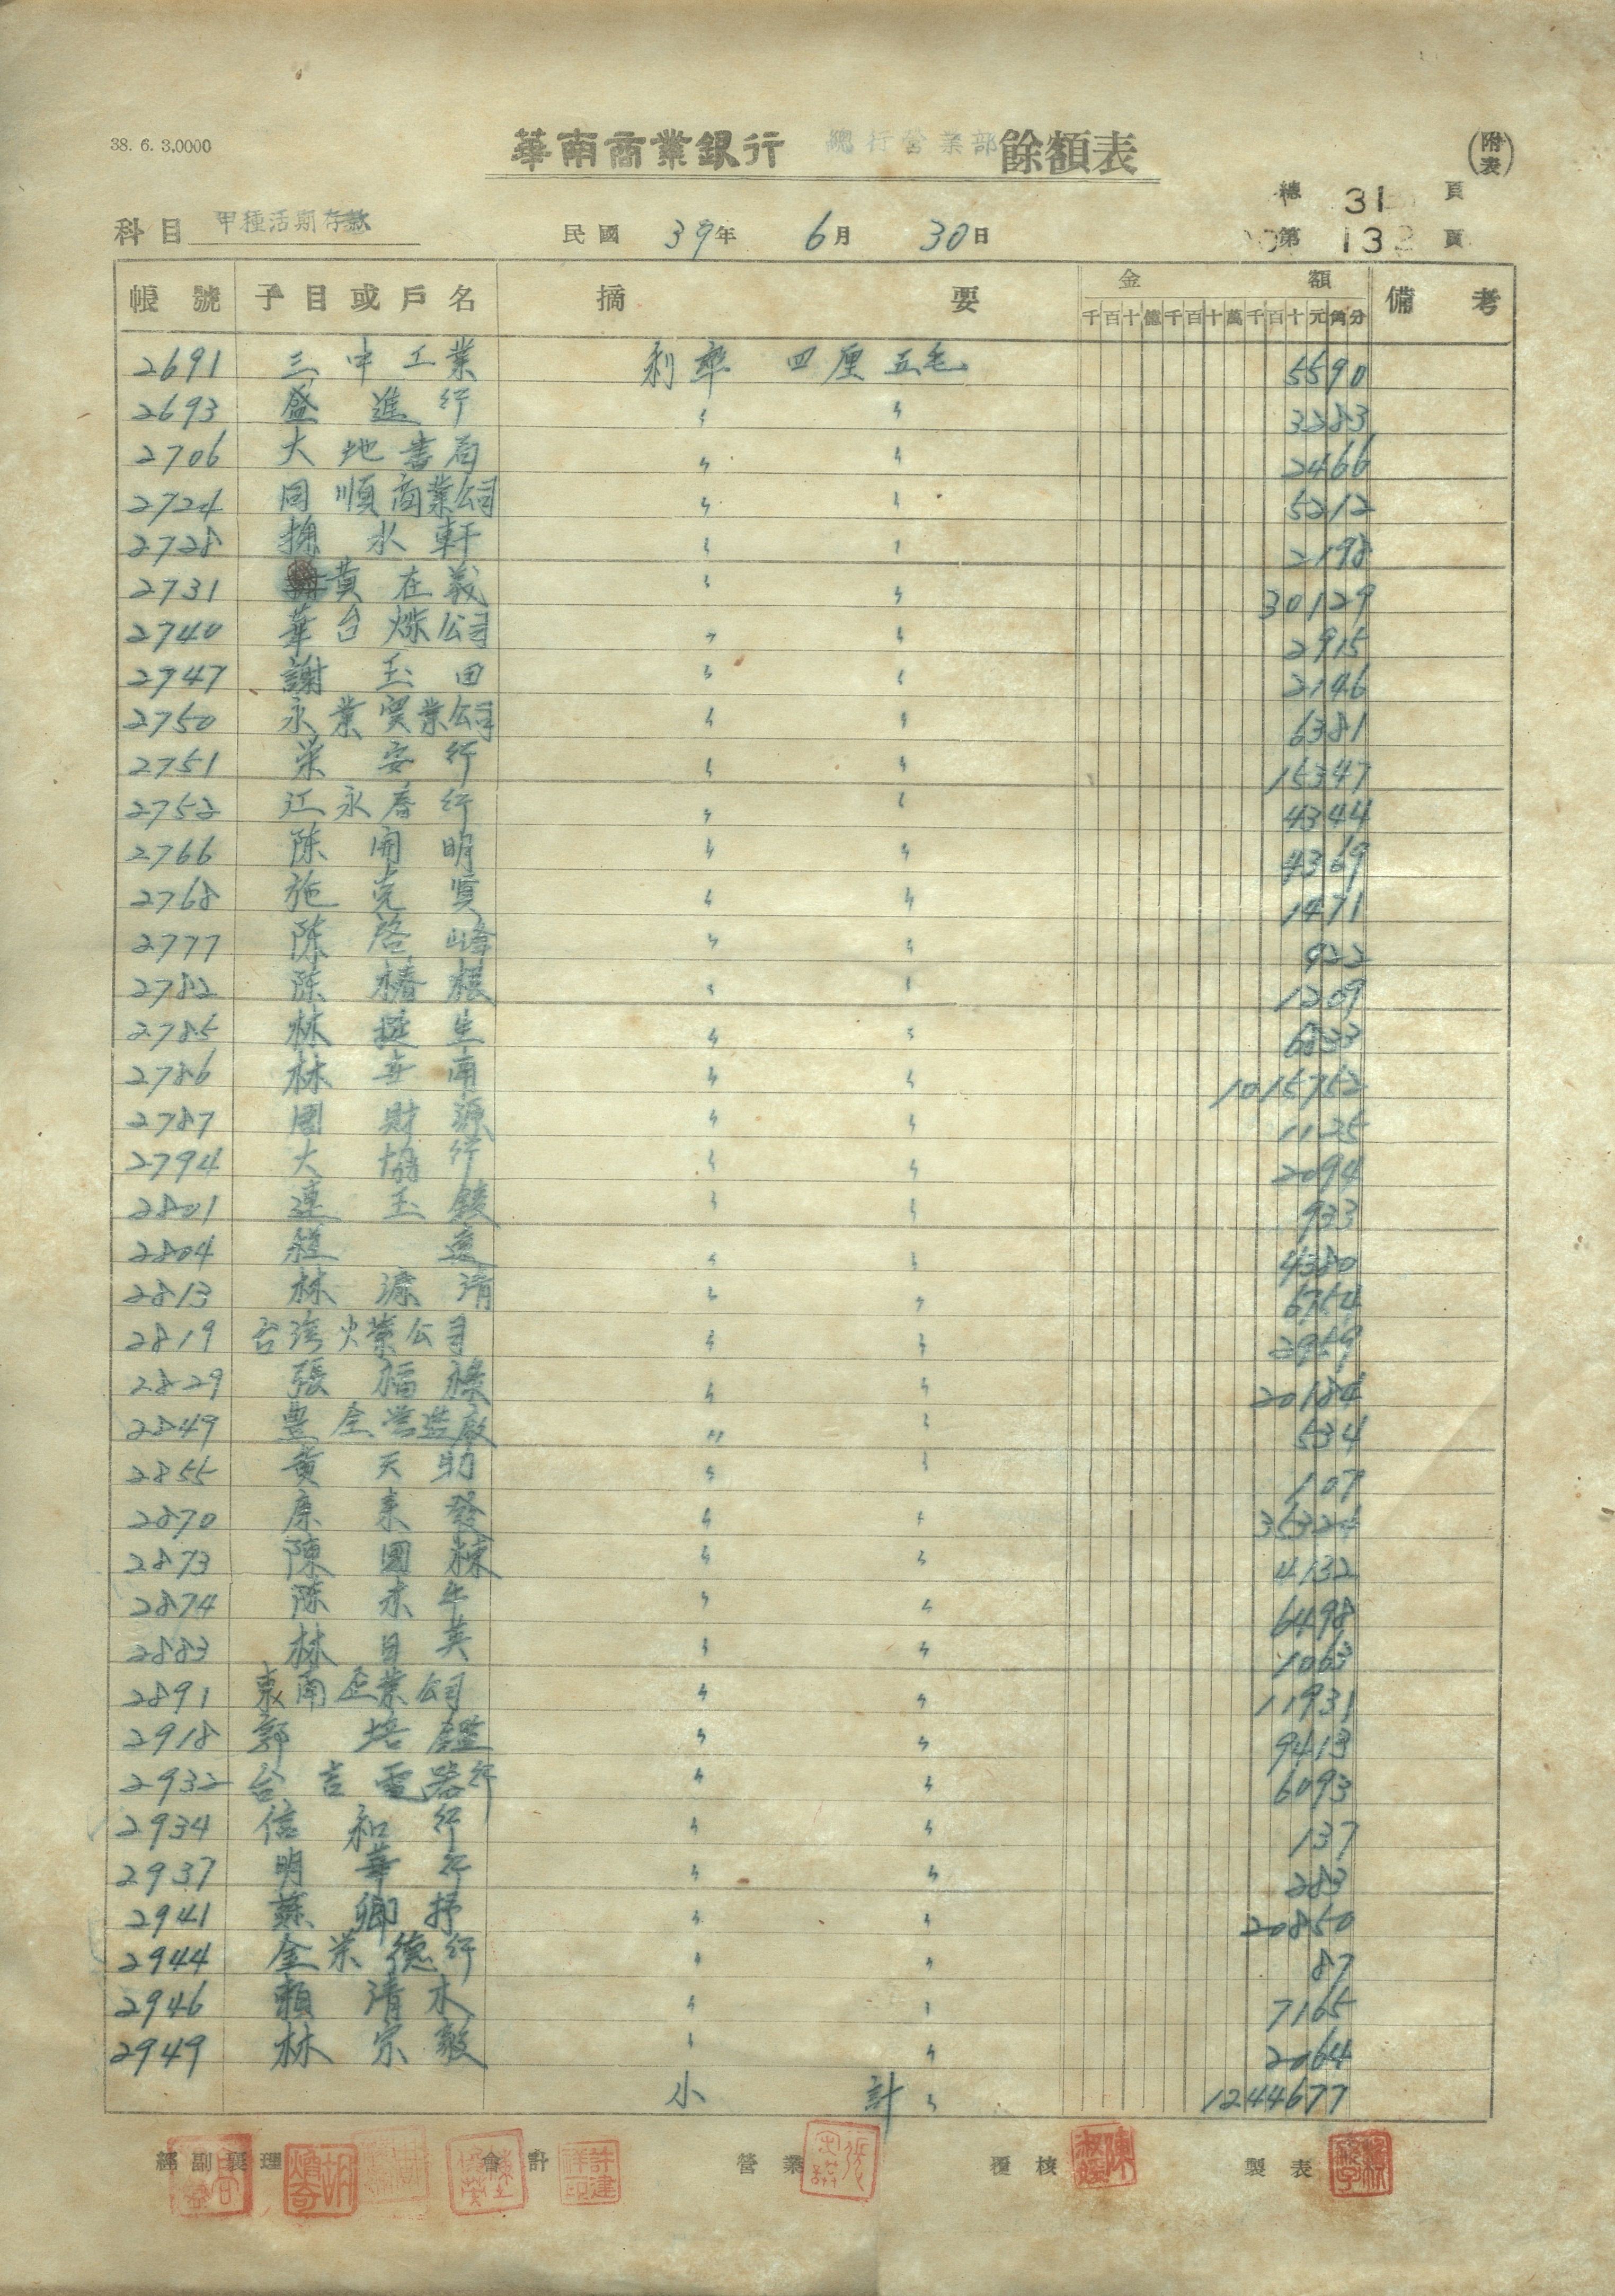 38. 6. 3.0000
華南商業銀行 總行營業部 餘額表
(附表)
總 31 頁
科目 甲種活期存款 民國 39年 6月 30日 第 132 頁
帳號 子目或戶名 摘要 金額 備考
千百十億千百十萬千百十元角分
2691 三中工業 利率 四厘五毛 5590
2693 盛進行 〃 〃 3283
2706 大地書局 〃 〃 2466
2724 同順商業公司 〃 〃 5212
2728 掬水軒 〃 〃 2198
2731 黄在義 〃 〃 30129
2740 華台煤公司 〃 〃 2915
2947 謝玉田 〃 〃 2146
2750 永業實業公司 〃 〃 6381
2751 栄安行 〃 〃 15347
2752 江永春行 〃 〃 4344
2766 陳開明 〃 〃 4369
2768 施克寛 〃 〃 1471
2777 陳啓峰 〃 〃 922
2782 陳椿根 〃 〃 1209
2785 林挺生 〃 〃 6833
2786 林安南 〃 〃 1015752
2787 團財源 〃 〃 1125
2794 大協行 〃 〃 2094
2801 連玉鍐 〃 〃 933
2804 〃 〃 4380
2813 林源清 〃 〃 6754
2819 台湾火柴公司 〃 〃 2959
2829 張福祿 〃 〃 20184
2849 豊全営造廠 〃 〃 534
2855 黄天助 〃 〃 107
2870 康来發 〃 〃 35324
2873 陳國棟 〃 〃 4132
2874 陳赤牛 〃 〃 6498
2883 林日英 〃 〃 1063
2891 東南企業公司 〃 〃 11931
2918 郭培鑑 〃 〃 9413
2932 台吉電器行 〃 〃 6093
2934 信和行 〃 〃 137
2937 明華行 〃 〃 283
2941 蘇卿抒 〃 〃 20850
2944 金栄德行 〃 〃 87
2946 賴清木 〃 〃 7165
2949 林宗毅 〃 〃 2064
小計 〃 1244677
經副襄理 會計 營業 覆核 製表